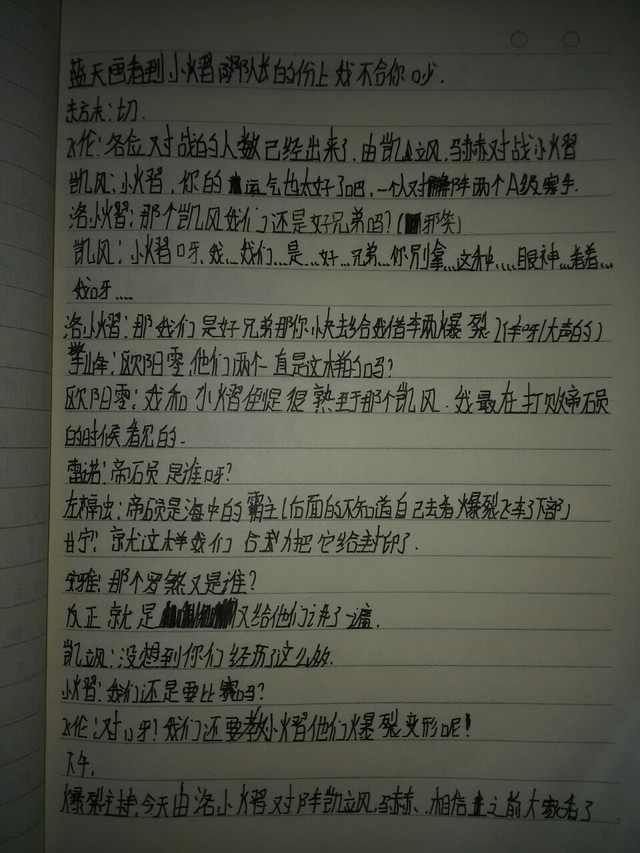 蓝天画看到小熠队长的份上我不合你吵.
东方末:切.
飞伦:各位对战的人数己经出来了,由凯立风,马赫对战小熠
凯风:小熠,你的运气也太好了吧,一人对阵两个A级赛手.
洛小熠:那个凯风我们还是好兄弟吗?(邪笑)
凯风:小熠呀,我...我们...是...好...兄弟...你别拿...这种....眼神...看着...
我呀....
洛小熠:那我们是好兄弟那你小快去给我借车两爆裂!(大声的)
峰:欧阳零,他们两个一直是这样的吗?
欧阳零:我和小熠倒是很熟至于那个凯风.我最在打败帝石员
的时候看见的.
雷诺:帝石员是谁呀?
左福虫:帝石员是海中的霸主(后面的不知道自己去看爆裂飞车了下部)
甘宁:就这样我们合力把它给封印了.
安雅:那个罗煞又是谁?
反正就是又给他们讲了一遍.
凯立风:没想到你们经历了这么多.
小熠:我们还是要比赛吗?
飞伦:对呀!我们还要教小熠他们爆裂变形呢!
下午,
爆裂主持:今天由洛小熠对阵凯立风,马赫、相信之前大家看了